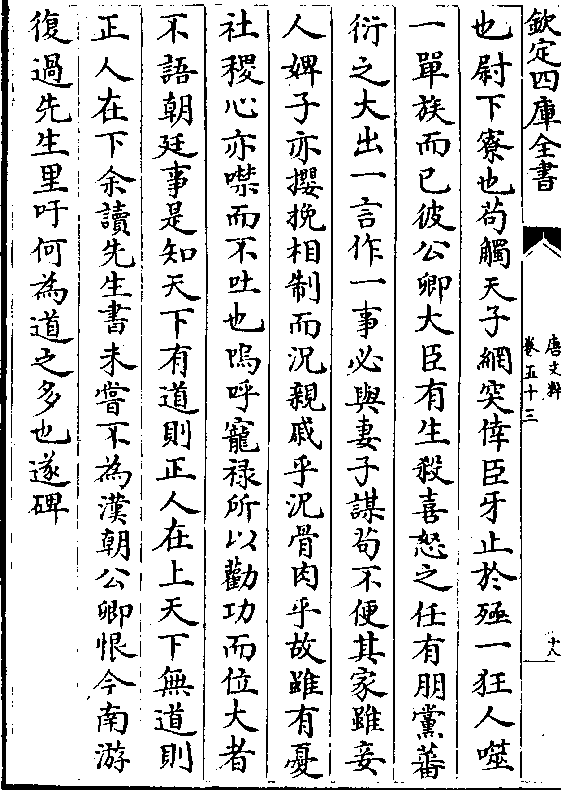 欽定四庫全書
唐文粹
卷五十三
十八
也尉下寮也苟觸天子網突倖臣牙止於殛一狂人噬
一單族而已彼公卿大臣有生殺喜怒之任有朋黨蕃
衍之大出一言作一事必與妻子謀苟不便其家雖妾
人婢子亦攖挽相制而況親戚乎況骨肉乎故雖有憂
社稷心亦噤而不吐也嗚呼寵祿所以勸功而位大者
不語朝廷事是知天下有道則正人在上天下無道則
正人在下余讀先生書未嘗不為漢朝公卿恨今南游
復過先生里吁何為道之多也遂碑